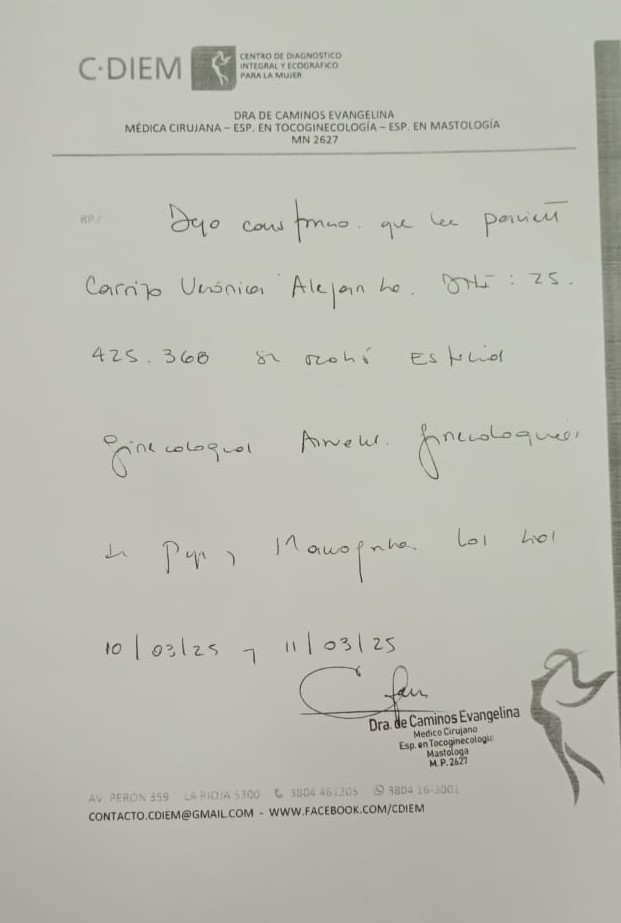 C·DIEM
CENTRO DE DIAGNOSTICO
INTEGRAL Y ECOGRAFICO
PARA LA MUJER
DRA DE CAMINOS EVANGELINA
MÉDICA CIRUJANA – ESP. EN TOCOGINECOLOGÍA – ESP. EN MASTOLOGÍA
MN 2627
RP/
Dejo constancia que la paciente
Carrizo Verónica Alejandra. DNI: 25.
425.368 se realizó Estudios
ginecologicos Anuales. ginecologicos
de Pap y Mamografia los días
10/03/25 y 11/03/25
Dra. de Caminos Evangelina
Medico Cirujano
Esp. en Tocoginecología
Mastologa
M.P. 2627
AV. PERÓN 359 LA RIOJA 5300 3804 461205 3804 16-3001
CONTACTO.CDIEM@GMAIL.COM - WWW.FACEBOOK.COM/CDIEM